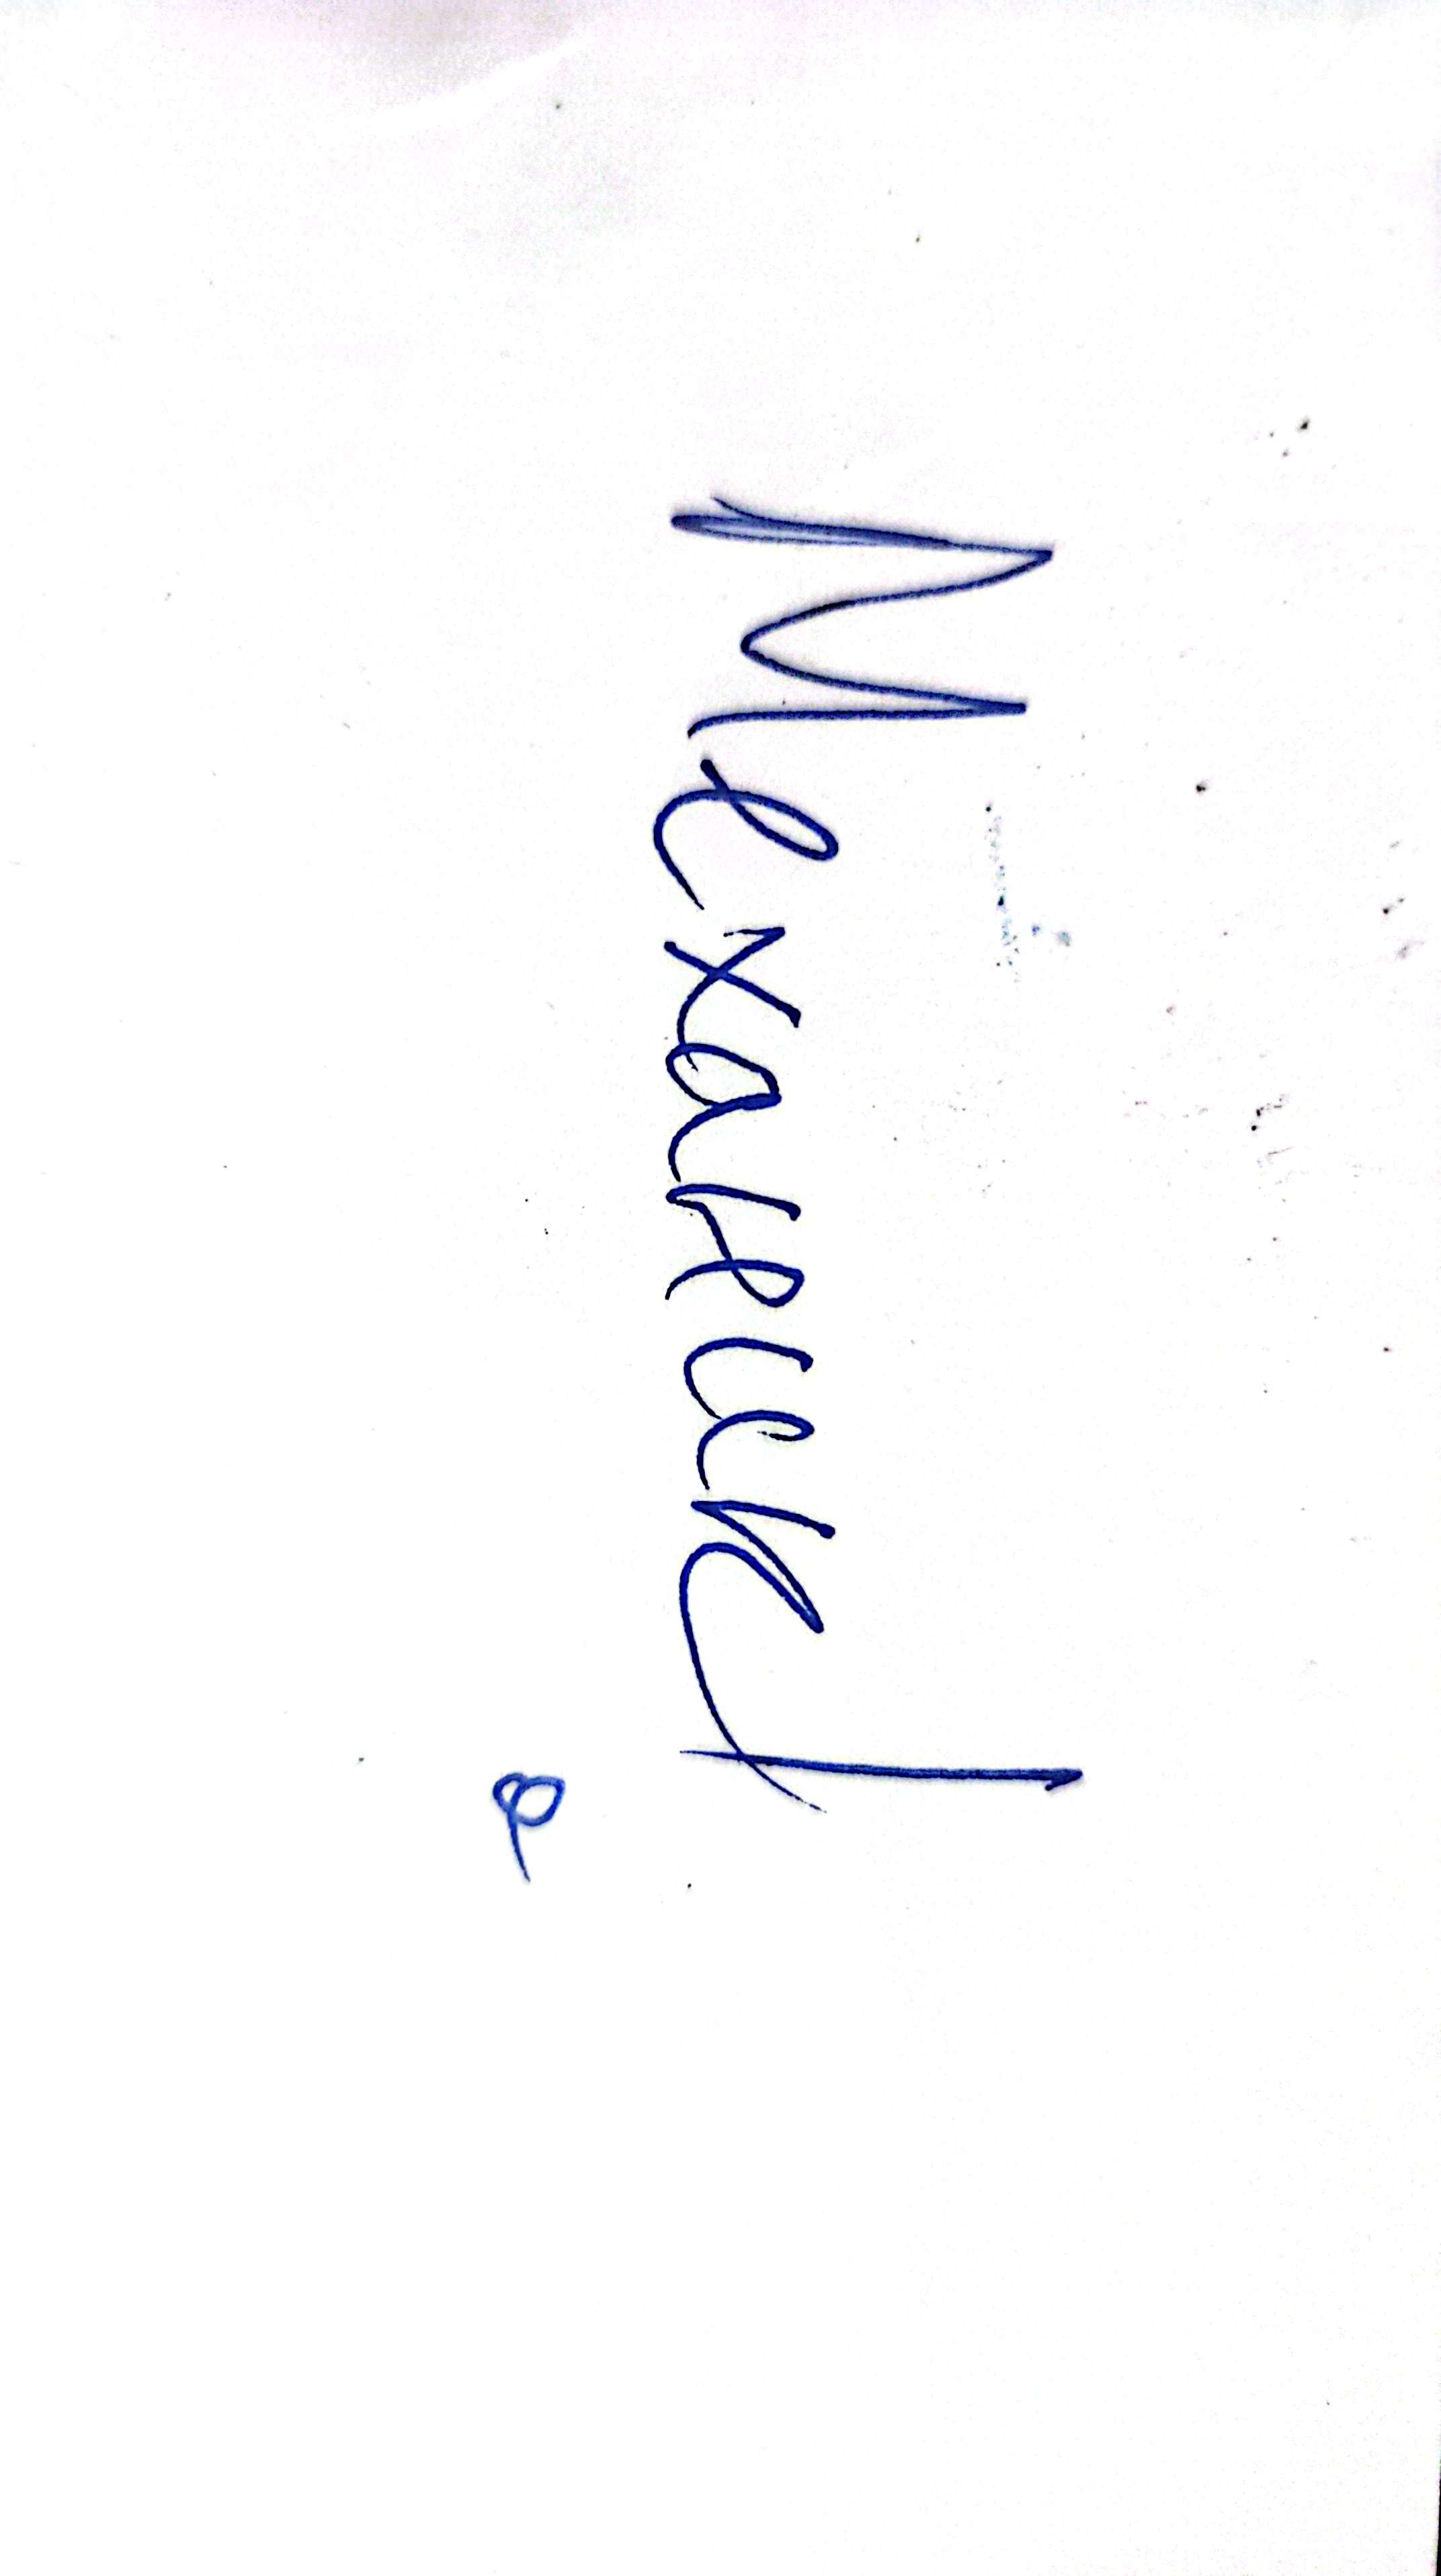 Механик!